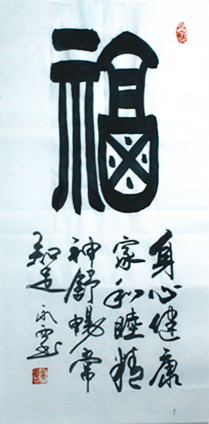 福
身心健康
家和睦精
神舒畅常
知足